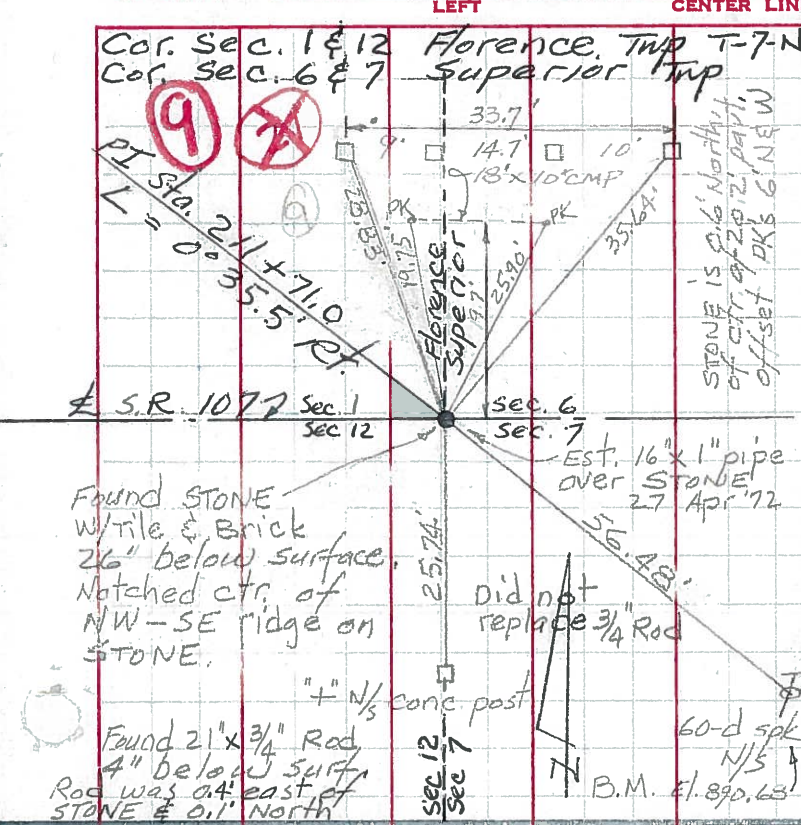 LEFT
CENTER LIN
Cor. Sec. 1 & 12 Florence Twp T-7-N
Cor. Sec. 6 & 7 Superior Twp
9
9
33.7'
9'
14.7'
10'
18' x 10" CMP
PK
PK
28.83'
19.75'
Florence
Superior
19.7'
25.90'
35.64'
STONE is 0.6' North
of ctr. of 20.2' pav't.
offset PK's 6' NEW
PI Sta. 211+71.0
L = 0° 35.5' Rt.
℄ S.R. 107
Sec. 1
Sec 12
Sec. 6
Sec. 7
Est. 16" x 1" pipe
over STONE
27 Apr '72
Found STONE
W/Tile & Brick
26" below surface.
Notched ctr. of
NW-SE ridge on
STONE.
25.74'
56.48'
Did not
replace 3/4" Rod
"+" N/S conc. post
N
Found 21" x 3/4" Rod
4" below surf.
Rod was 0.4' east of
STONE & 0.1' North
Sec 12
Sec 7
60-d spk
N/S
B.M. El. 890.68